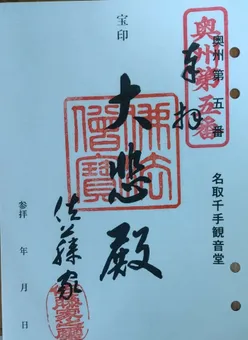 奥州第五番
奥州第五番
奉拝
宝印
大悲殿
佛法僧寶
名取千手観音堂
佐藤家
参拝　年　月　日